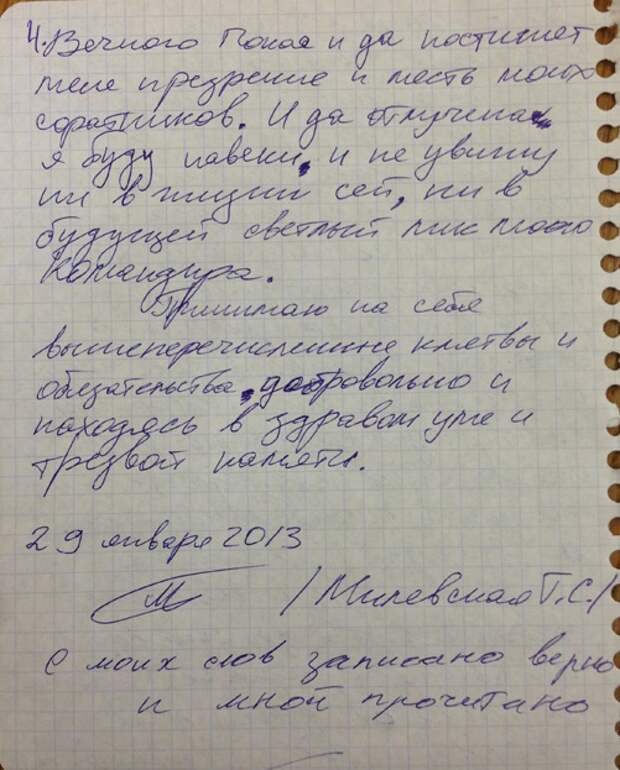 4. Вечного Покоя и да постигнет
меня презрение и месть моих
соратников. И да отлучена
я буду навеки, и не увижу
ни в жизни сей, ни в
будущей светлый лик моего
Командира.
Принимаю на себя
вышеперечисленные клятвы и
обязательства добровольно и
находясь в здравом уме и
трезвой памяти.
29 января 2013
/Милевская Т.С./
С моих слов записано верно
и мной прочитано